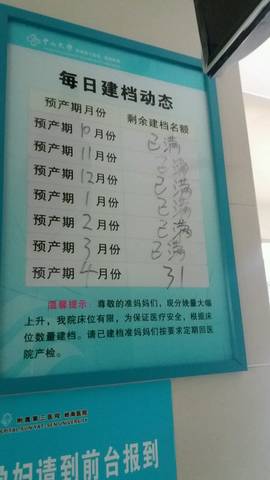 中山大學
每日建档动态
预产期月份 剩余建档名额
预产期10月份 已满
预产期11月份 已满
预产期12月份 已满
预产期1月份 已满
预产期2月份 已满
预产期3月份 已满
预产期4月份 31
温馨提示：尊敬的准妈妈们，现分娩量大幅
上升，我院床位有限，为保证医疗安全，根据床
位数量建档。请已建档准妈妈们按要求定期回医
院产检。
附属第三医院 岭南医院
SPITAL SUN YAT-SEN UNIVERSITY
孕妇请到前台报到